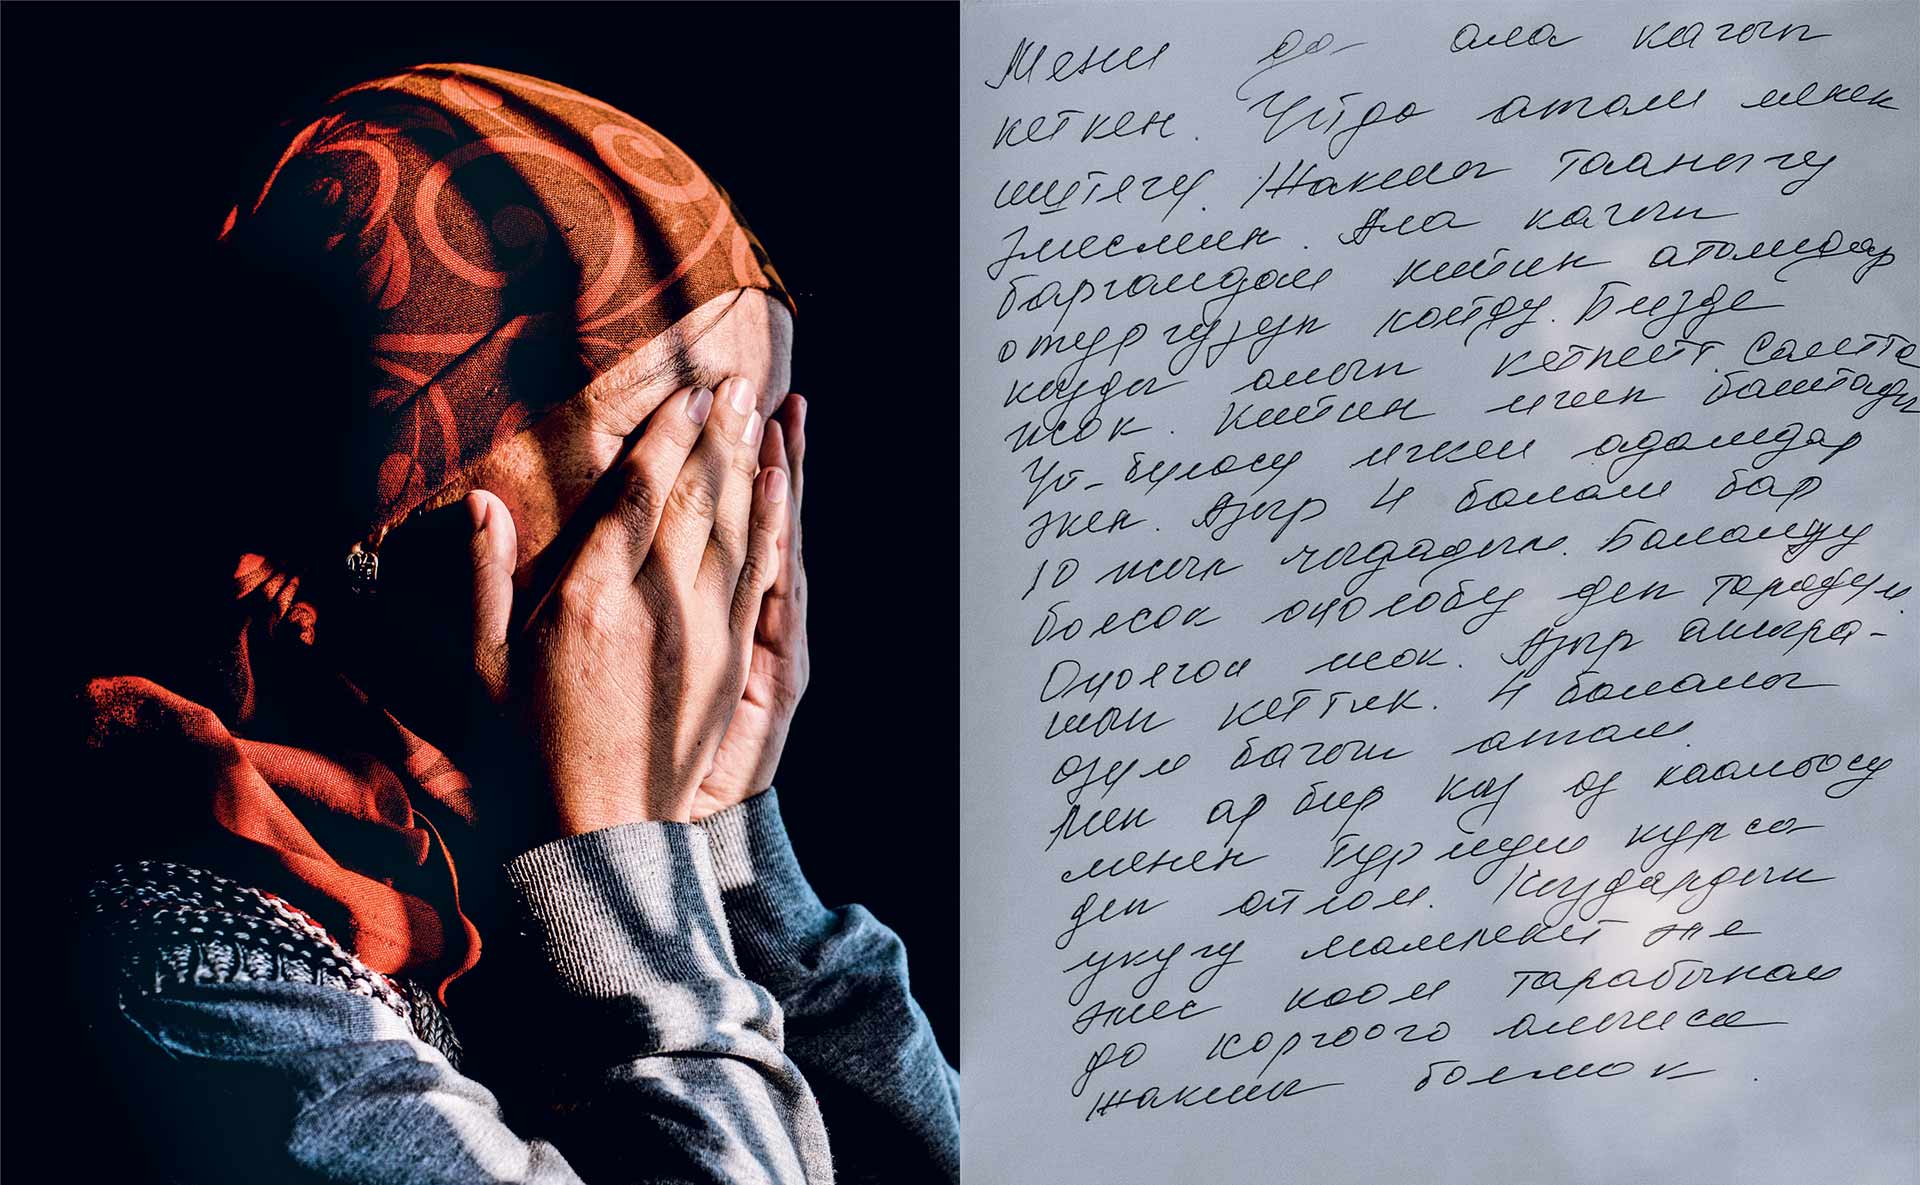 Мени да ала качып
кеткен. Үйдө апам менен
иштегем. Жакшы тааныгам
эмесмин. Ала качып
баргандан кийин апамдар
отургузуп койду. Бизде
кызды алып кетпейт. Салтта
жок. Кийин ичип баштады
Үй-бүлөсү ичкен адамдар
экен. Азыр 4 балам бар
10 жыл чыдадым. Балалуу
болсок оңолобу деп карадым.
Оңолгон жок. Азыр ажыра-
шып кеттик. 4 баланы
өзүм багып атам.
Мен ар бир кыз өз каалоосу
менен турмуш курса
деп ойлом. Кыздардын
укугу мамлекет же
эмес коом тарабынан
да коргоого алынса
жакшы болмок.